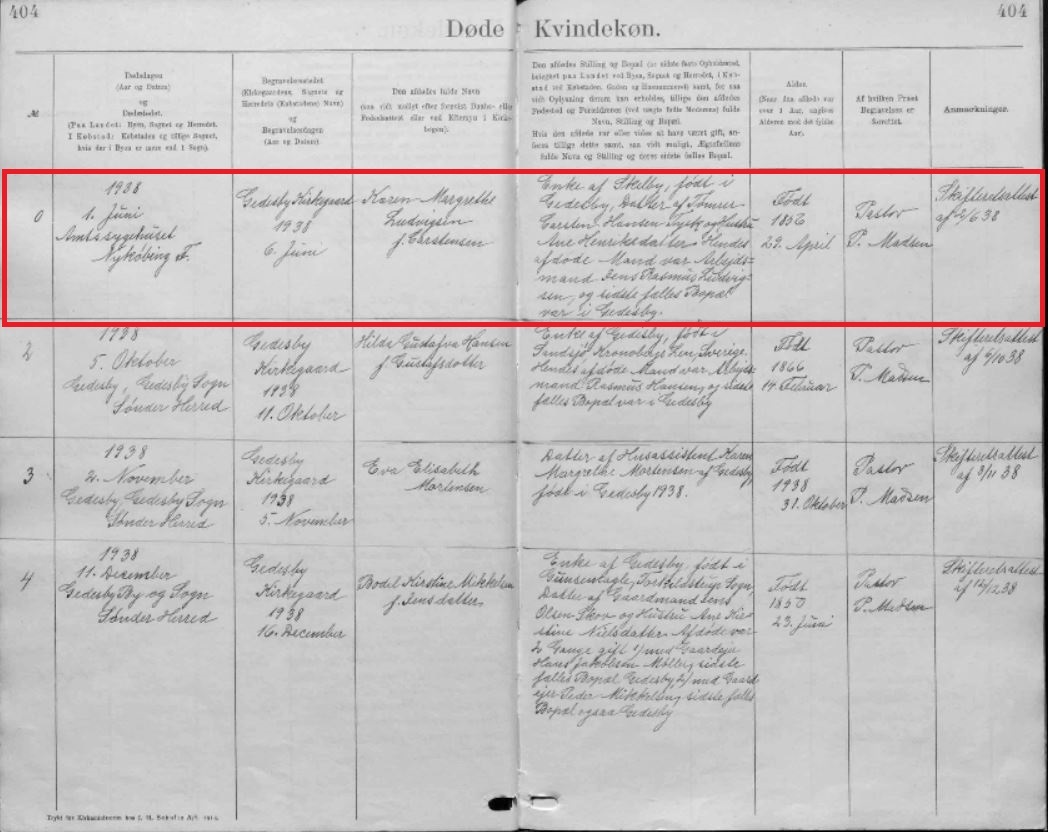 404
404
Døde Kvindekøn.
№
Dødsdagen
(Aar og Datum)
og
Dødsstedet.
(Paa Landet: Byen, Sognet og Herredet.
I Købstad: Købstaden og tillige Sognet,
hvis der i Byen er mere end 1 Sogn).
Begravelsesstedet
(Kirkegaardens, Sognets og
Herredets (Købstadens) Navn)
og
Begravelsesdagen
(Aar og Datum).
Den afdødes fulde Navn
(saa vidt muligt efter forevist Daabs- eller
Fødselsattest eller ved Eftersyn i Kirke-
bogen).
Den afdødes Stilling og Bopæl (or sidste faste Opholdssted,
betegnet paa Landet ved Byen, Sognet og Herredet, i Køb-
stad ved Købstaden, Gaden og Husnummeret) samt, for saa
vidt Oplysning derom kan erholdes, tillige den afdødes
Fødested og Forældrenes (ved uægte fødte Moderens) fulde
Navn, Stilling og Bopæl.
Hvis den afdøde var eller vides at have været gift, an-
føres tillige dette samt, saa vidt muligt, Ægtefællens
fulde Navn og Stilling og deres sidste fælles Bopæl.
Alder.
(Naar den afdøde var
over 1 Aar, angives
Alderen med det fyldte
Aar).
Af hvilken Præst
Begravelsen er
forrettet.
Anmærkninger.
0
1938
1. Juni
Amtssygehuset
Nykøbing F.
Gedesby Kirkegaard
1938
6. Juni
Karen Margrethe
Ludvigsen
f. Carstensen
Enke af Skelby, født i
Gedesby, Datter af Tømrer
Carsten Hansen Tysk og Hustru
Ane Henriksdatter. Hendes
afdøde Mand var Arbejds-
mand Jens Rasmus Ludvig-
sen, og sidste fælles Bopæl
var i Gedesby.
Født
1856
29. April
Pastor
P. Madsen
Skifteretsattest
af 2/6 38
2
1938
5. Oktober
Gedesby, Gedesby Sogn
Sønder Herred
Gedesby
Kirkegaard
1938
11. Oktober
Hilda Gustafva Hansen
f. Gustafsdotter
Enke af Gedesby, født i
Sandsjö, Kronobergs Len, Sverige.
Hendes afdøde Mand var Arbejds-
mand Rasmus Hansen, og sidste
fælles Bopæl var i Gedesby
Født
1866
14. Februar
Pastor
P. Madsen
Skifteretsattest
af 6/10 38
3
1938
2. November
Gedesby, Gedesby Sogn
Sønder Herred
Gedesby
Kirkegaard
1938
5. November
Eva Elisabeth
Mortensen
Datter af Husassistent Karen
Margrethe Mortensen af Gedesby,
født i Gedesby 1938.
Født
1938
31. Oktober
Pastor
P. Madsen
Skifteretsattest
af 3/11 38
4
1938
11. December
Gedesby By og Sogn
Sønder Herred
Gedesby
Kirkegaard
1938
16. December
Bodel Kirstine Mikkelsen
f. Jensdatter
Enke af Gedesby, født i
Gundslagle, Torkildstrup Sogn,
Datter af Gaardmand Jens
Olsen Skov og Hustru Ane Kir-
stine Nielsdatter. Afdøde var
2 Gange gift 1) med Gaardejer
Hans Jakobsen Møller, sidste
fælles Bopæl Gedesby 2) med Gaard-
ejer Peder Mikkelsen, sidste fælles
Bopæl ogsaa Gedesby
Født
1850
23. Juni
Pastor
P. Madsen
Skifteretsattest
af 12/12 38
Trykt for Kirkeministeriet hos J. H. Schultz A/S.